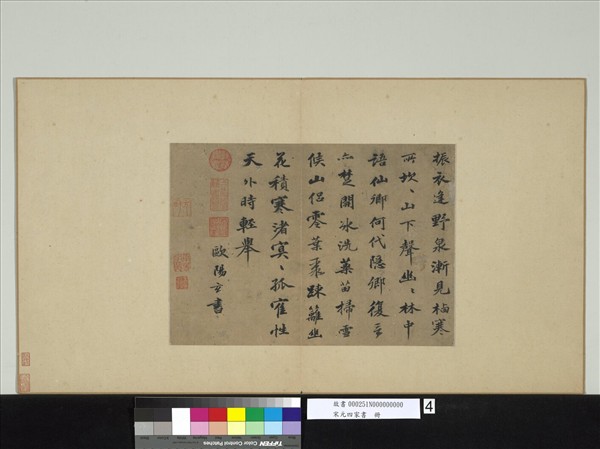 振衣逢野泉漸見栖寒
所坎〻山下聲幽〻林中
語仙鄉何代隱鄉復言
亦楚開冰洗藥苗掃雪
候山侶零葉聚踈籬幽
花積寒渚冥〻孤雀性
天外時輕舉
歐陽玄書
故書 000251N000000000
宋元四家書 冊
4
TIFFEN Color Control Patches